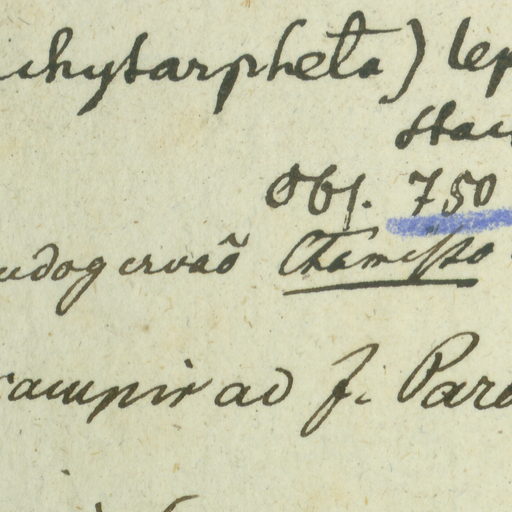 chytarpheta) lep
stac
Obs. 750
udogervaõ Chamisso
campis ad f. Para